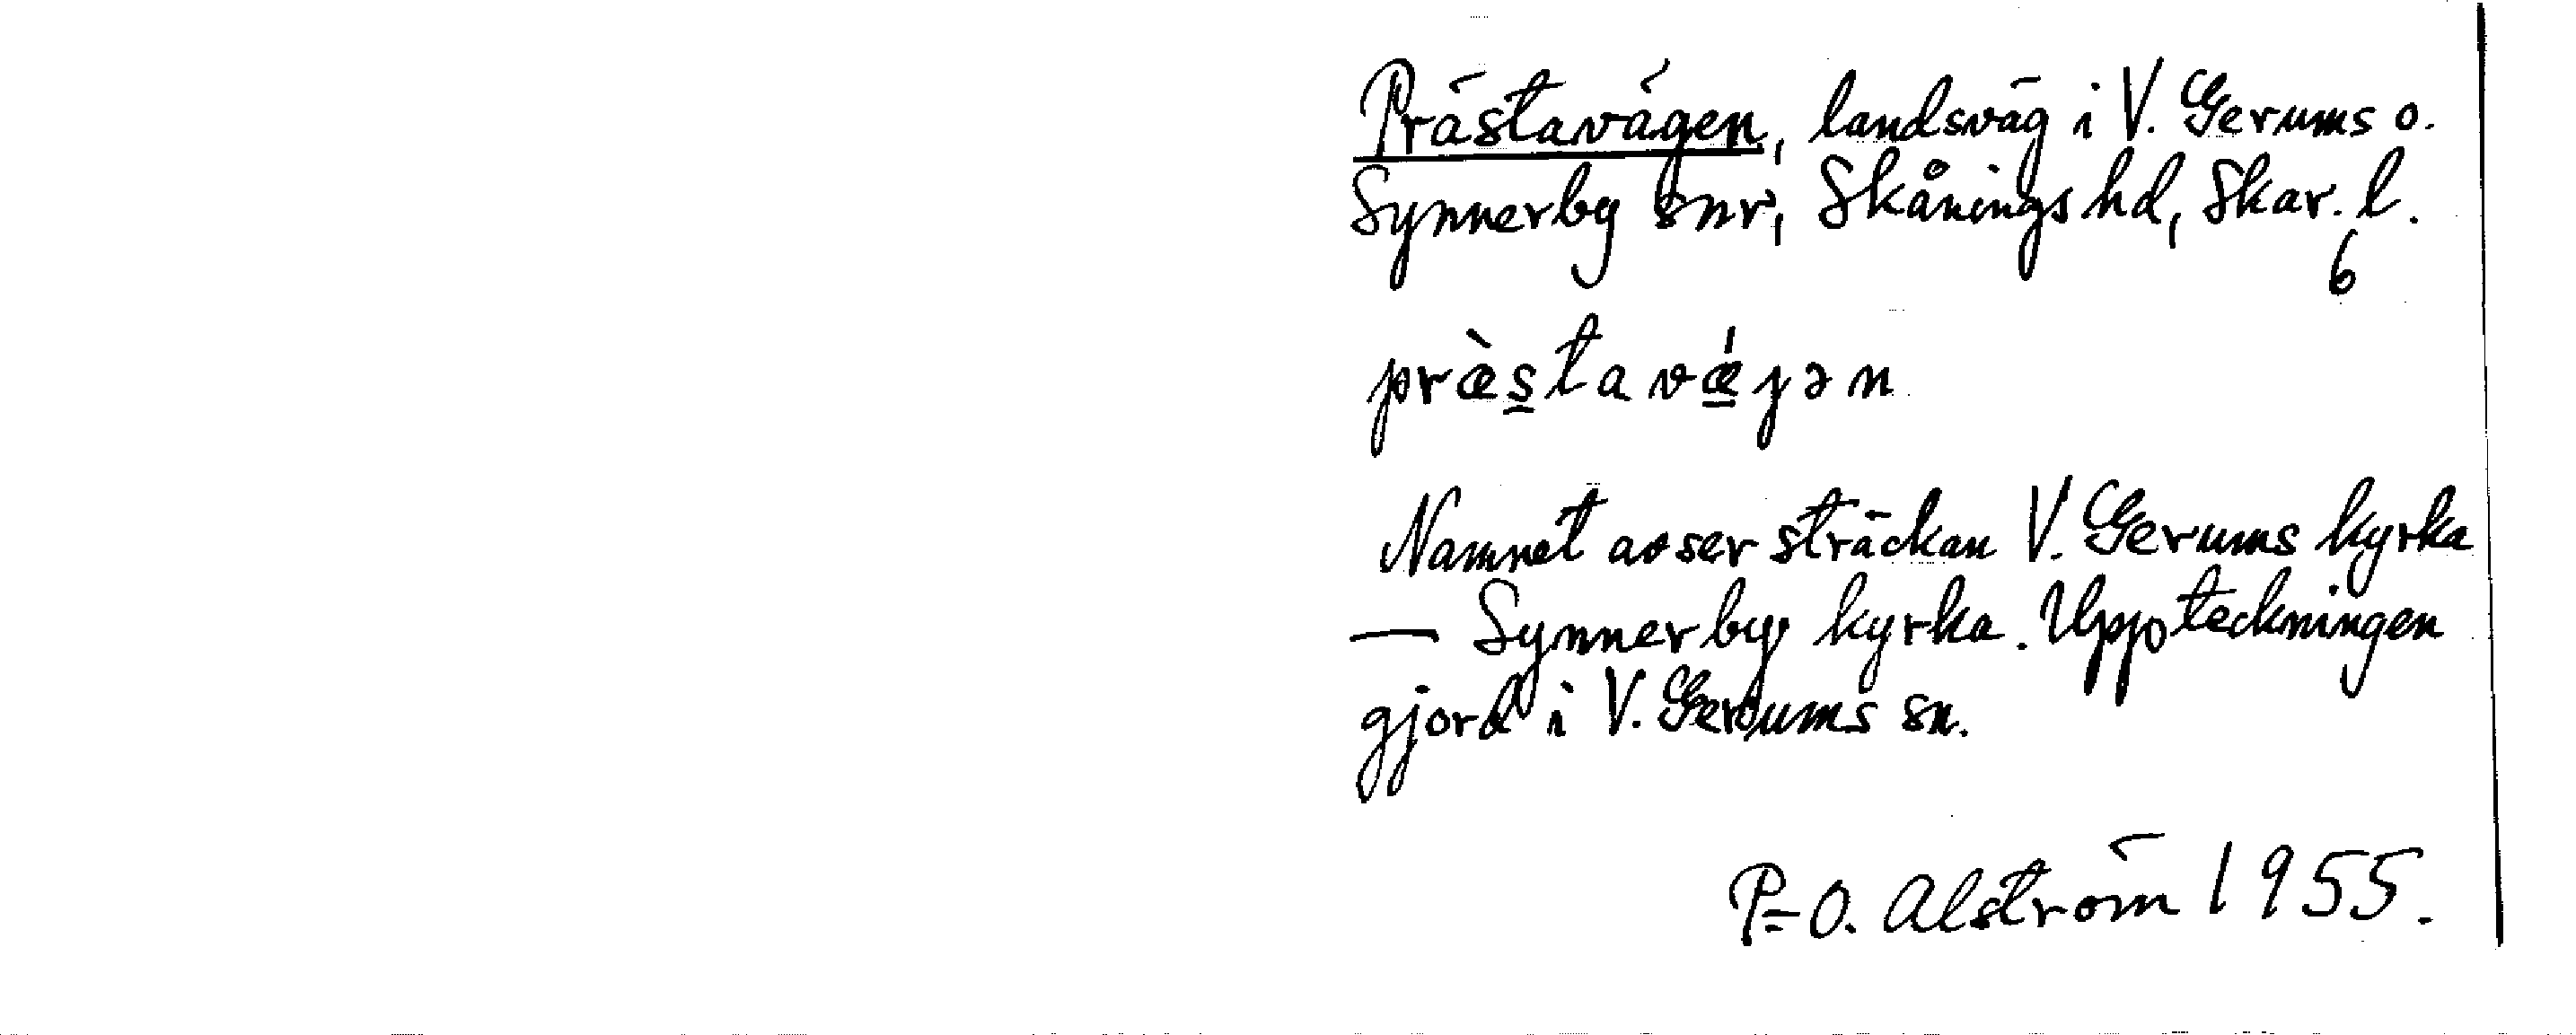 Prästavägen, landsväg i V. Gerums o.
Synnerby snr, Skånings hd, Skar. l.
6
præ̀s̲tavǽ̲jən
Namnet avser sträckan V. Gerums kyrka
— Synnerby kyrka. Uppteckningen
gjord i V. Gerums sn.
P=O. Alström 1955.